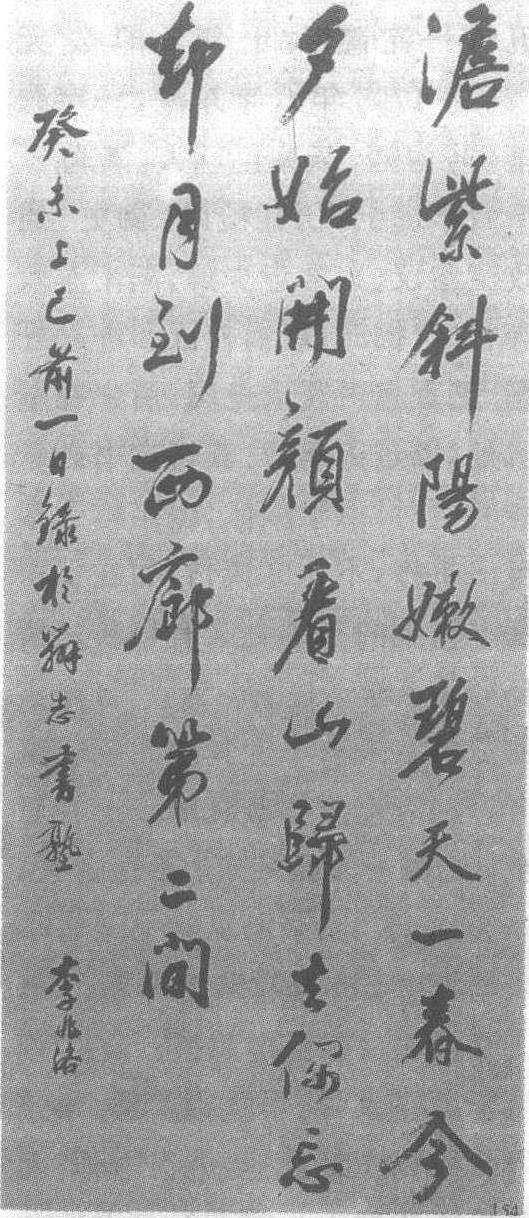 澹紫斜陽嫩碧天一春今
夕始開顏看山歸去偶忘
却月到西廊第二間
癸未上巳前一日錄於辨志書塾
李兆洛
154